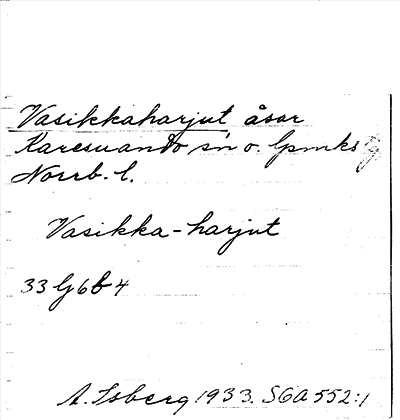 Vasikkaharjut åsar
Karesuando sn o. lpmks
Norrb. l.
Vasikka-harjut
33 6b 4
A. Isberg 1933. SGA 552:1